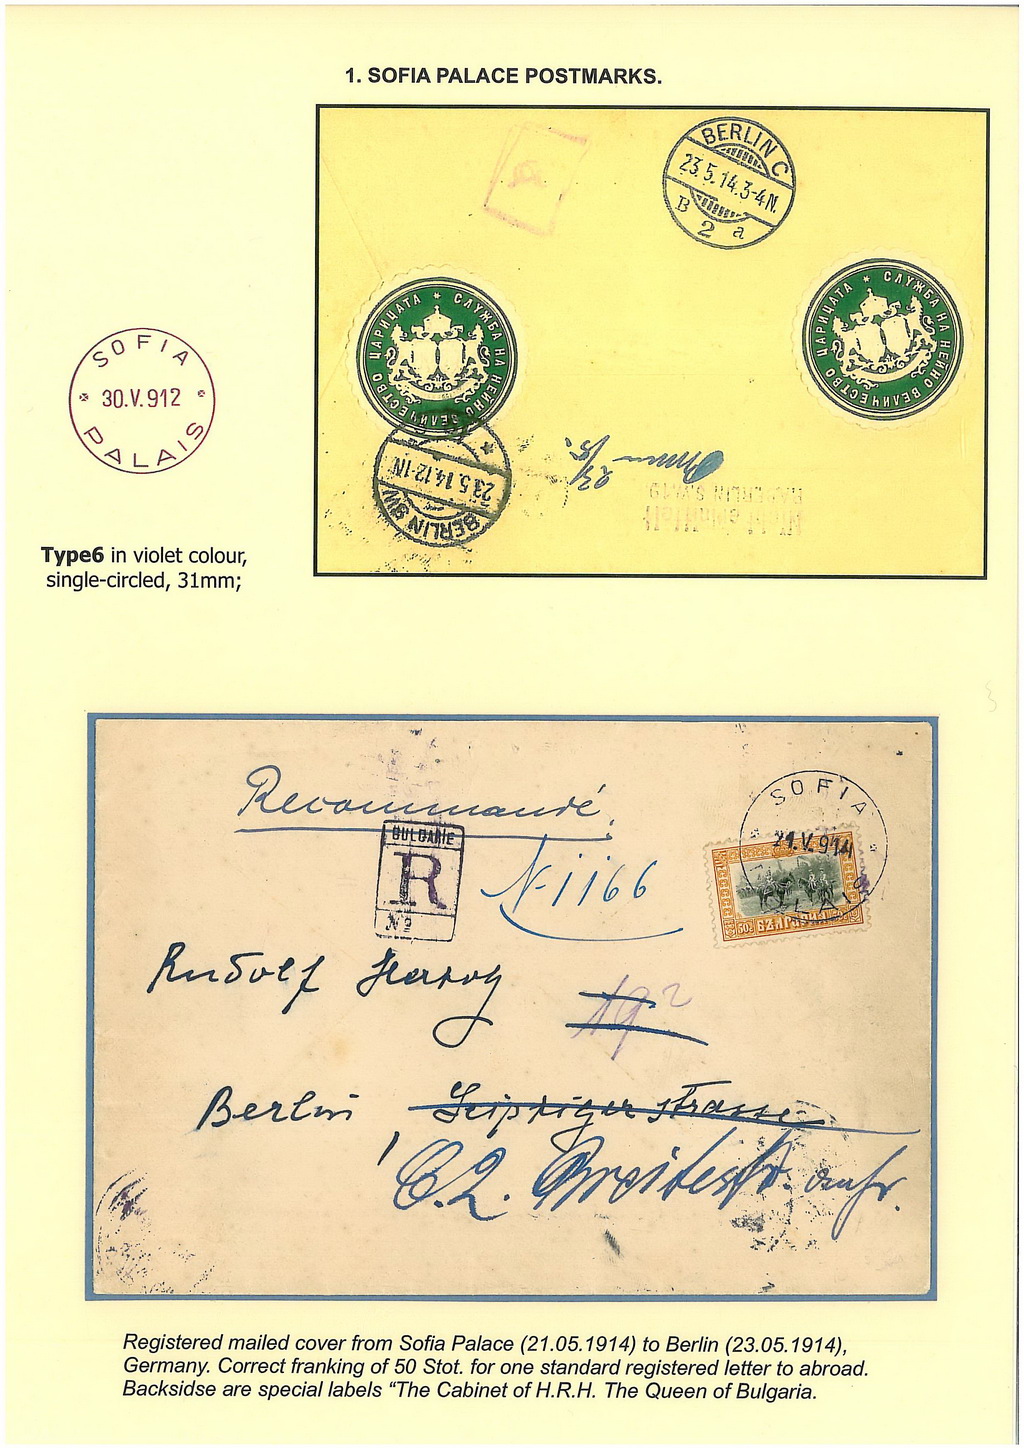 1. SOFIA PALACE POSTMARKS.
BERLIN C
23.5.14.3-4N.
B 2 a
СЛУЖБА НА НЕЙНО ВЕЛИЧЕСТВО ЦАРИЦАТА
СЛУЖБА НА НЕЙНО ВЕЛИЧЕСТВО ЦАРИЦАТА
23.5.14.12-1N
BERLIN SW
23/5.
SOFIA
30.V.912
PALAIS
Type6 in violet colour,
single-circled, 31mm;
Recommandé.
SOFIA
21.V.914
BULGARIE
R
№
N-1166
50
Rudolf Herzog
Berlin Leipziger Strasse
C.2. Breitestr.
Registered mailed cover from Sofia Palace (21.05.1914) to Berlin (23.05.1914),
Germany. Correct franking of 50 Stot. for one standard registered letter to abroad.
Backsidse are special labels "The Cabinet of H.R.H. The Queen of Bulgaria.